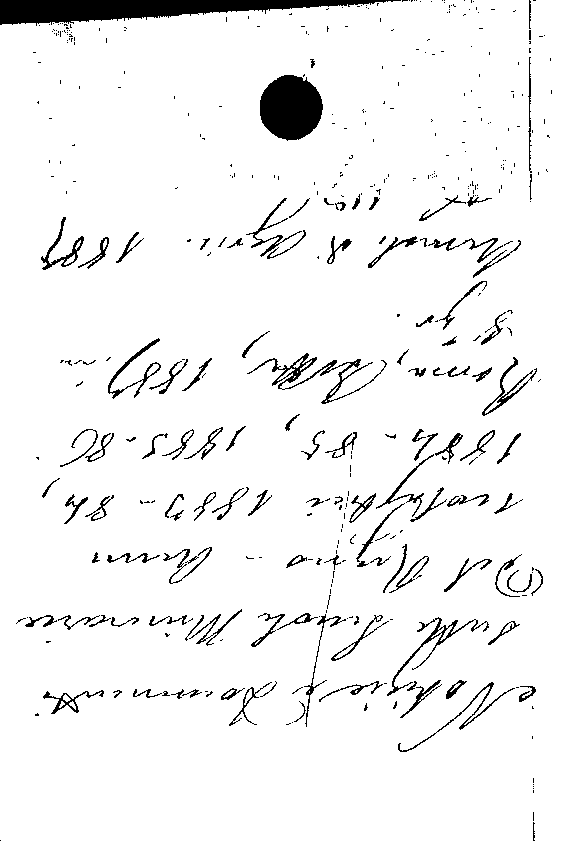 Notizie e Documenti
sulle Scuole Minerarie
del Regno - Anni
scolastici 1883-84,
1884-85, 1885-86.
Roma, Botta, 1887, in
8° gr.
Annali di Agric. 1887